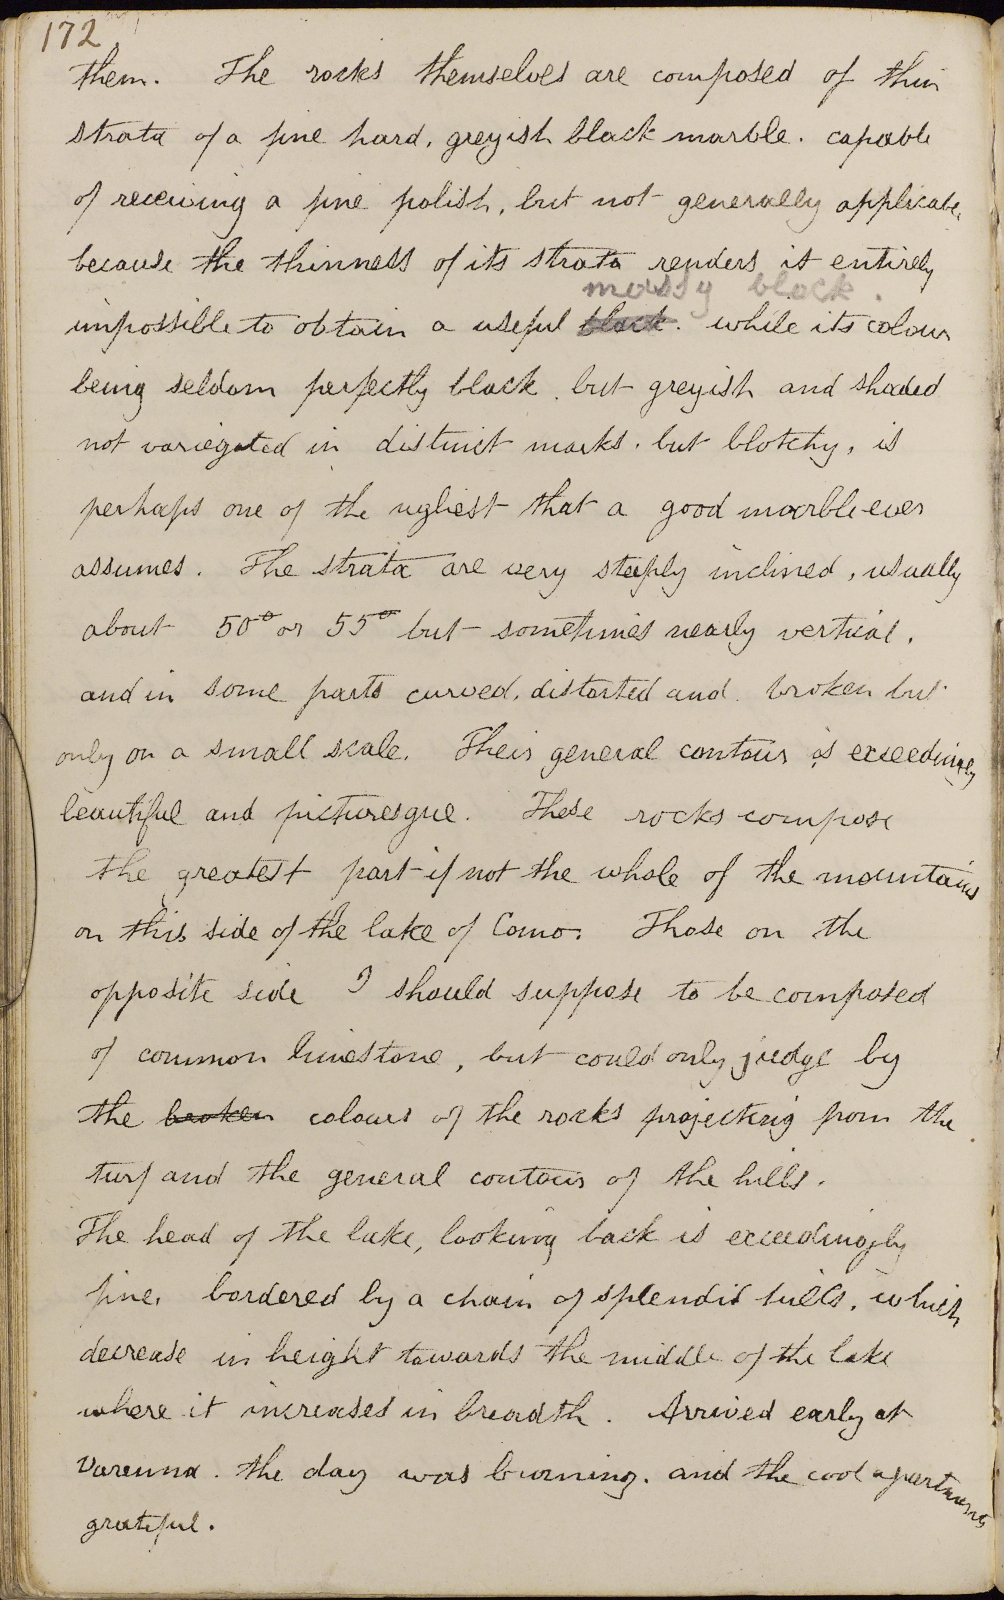 172
them. The rocks themselves are composed of thin
strata of a fine hard, greyish black marble. capable
of receiving a fine polish, but not generally applicable,
because the thinness of its strata renders it entirely
massy block.
impossible to obtain a useful block. while its colour
being seldom perfectly black, but greyish and shaded
not variegated in distinct marks. but blotchy, is
perhaps one of the ugliest that a good marble ever
assumes. The strata are very steeply inclined, usually
about 50° or 55° but sometimes nearly vertical,
and in some parts curved, distorted and broken but
only on a small scale. Their general contour is exceedingly
beautiful and picturesque. These rocks compose
the greatest part if not the whole of the mountains
on this side of the lake of Como. Those on the
opposite side I should suppose to be composed
of common limestone, but could only judge by
the broken colours of the rocks projecting from the
turf and the general contour of the hills.
The head of the lake, looking back is exceedingly
fine, bordered by a chain of splendid hills, which
decrease in height towards the middle of the lake
where it increases in breadth. Arrived early at
Varenna. the day was burning. and the cool apartments
grateful.